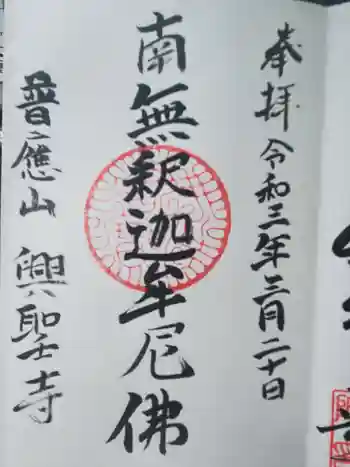 奉拝 令和三年三月二十日
南無釈迦牟尼佛
普應山 興聖寺